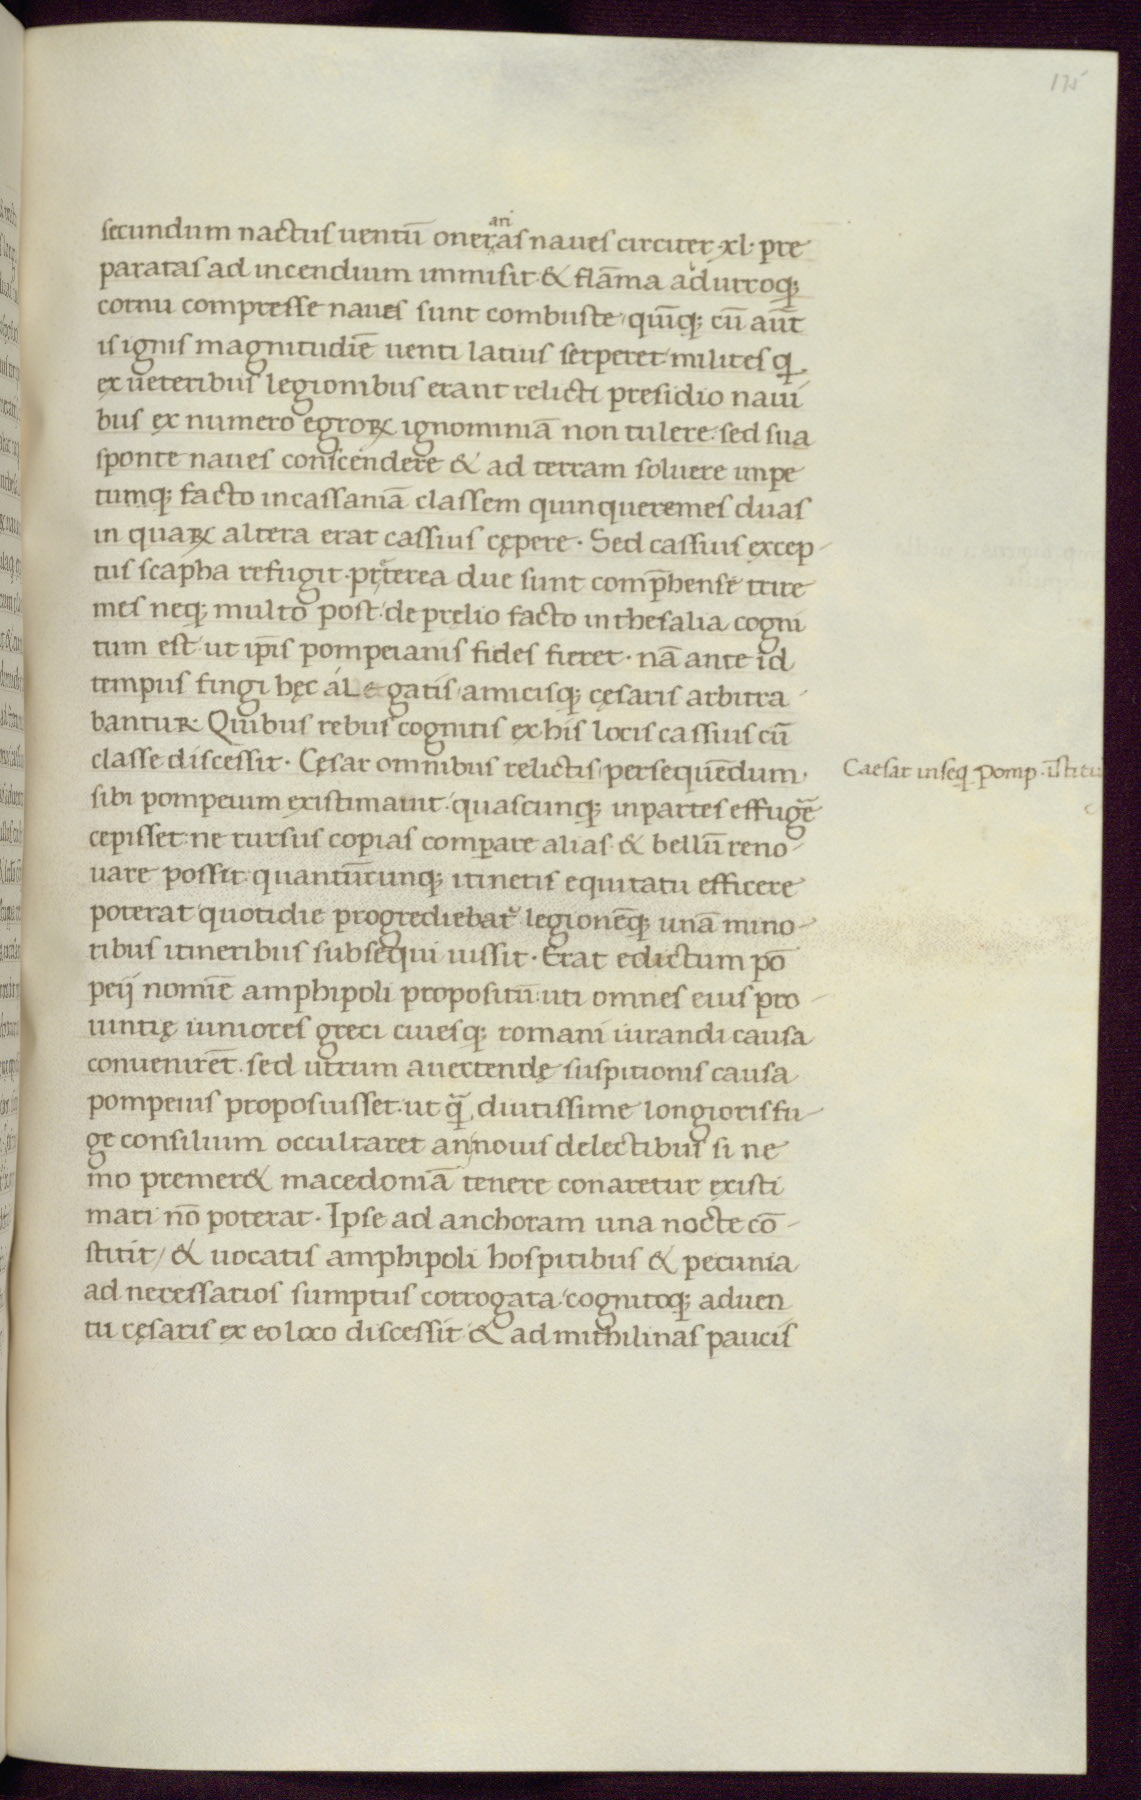 175
secundum nactus uentū onerarias naues circiter xl· pre
paratas ad incendium immisit & flāma ab utroq;
cornu compresse naues sunt combuste quīq; cū aūt
is ignis magnitudīe uenti latius serperet milites q
ex ueteribus legionibus erant relicti presidio naui
bus ex numero egroꝝ ignominiā non tulere: sed sua
sponte naues conscendere & ad terram soluere impe
tumq; facto in cassaniā classem quinqueremes duas
in quaꝝ altera erat cassius cępere· Sed cassius excep-
tus scapha refugit· p̄terea due sunt comp̄hense trire
mes neq; multo post· de pręlio facto in thesalia cogni
tum est ut ip̄is pompeianis fides fieret· nā ante id
tempus fingi hęc a legatis amicisq; cęsaris arbitra-
bantur· Quibus rebus cognitis ex his locis cassius cū
classe discessit· Cęsar omnibus relictis persequēdum
Caesar inseq Pomp· īstitu
sibi pompeium existimauit quascunq; in partes effugē
cepisset: ne rursus copias comparare alias & bellū reno-
uare possit quantūcunq; itineris equitatu efficere
poterat quotidie progrediebat legionēq; unā mino-
ribus itineribus subsequi iussit· Erat edictum pō
peij nomīe amphipoli propositū: uti omnes eius pro-
uintię iuniores greci ciuesq; romani iurandi causa
conuenirēt· sed utrum auertendę suspitionis causa
pompeius proposuisset· ut q̄ diutissime longioris fu-
ge consilium occultaret an nouis delectibus si ne
mo premer& macedoniā tenere conaretur existi
mari nō poterat· Ipse ad anchoram una nocte cō-
stitit / & uocatis amphipoli hospitibus & pecunia
ad necessarios sumptus corrogata cognitoq; aduen
tu cęsaris ex eo loco discessit & ad mithilinas paucis